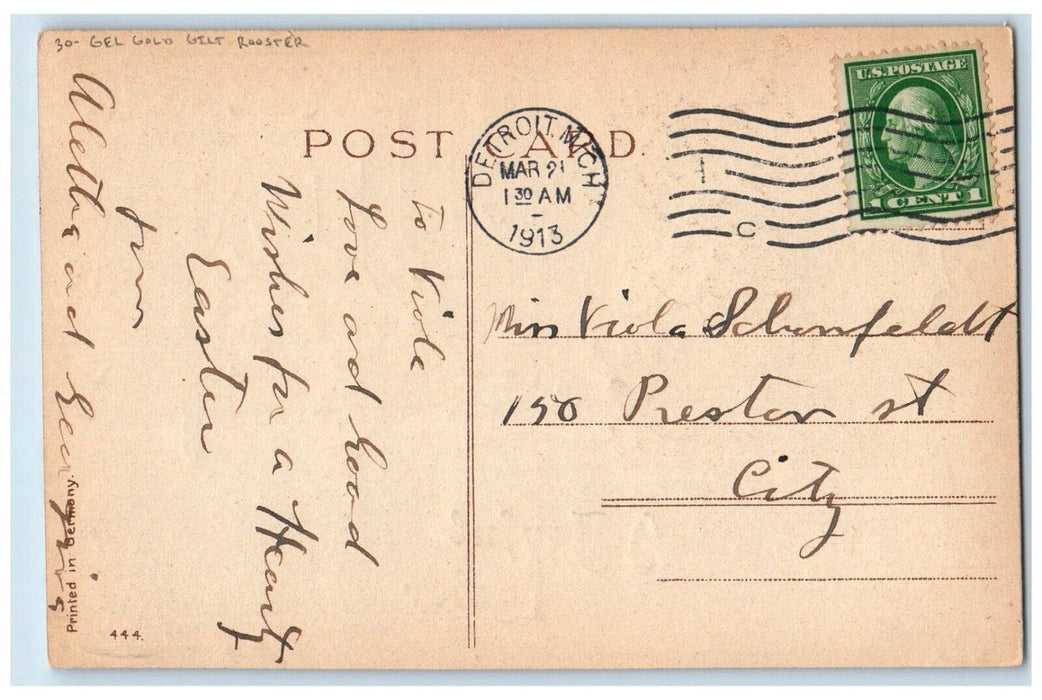 30- GEL GOLD GILT ROOSTER
POST CARD.
DETROIT, MICH
MAR 21
1 30 AM
1913
C
U.S. POSTAGE
1 CENT 1
To Viola
Love and Good
Wishes for a Hearty
Easter
from
Aletha and
Miss Viola Schonfeldt
150 Preston st
City
Printed in Germany.
444.